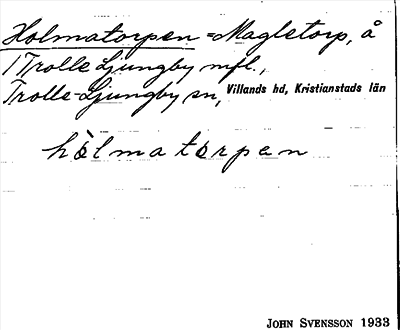 Holmatorpen = Magletorp, å
1 Trolle Ljungby mfl.,
Trolle-Ljungby sn, Villands hd, Kristianstads län
hòlmatòrpen
JOHN SVENSSON 1933